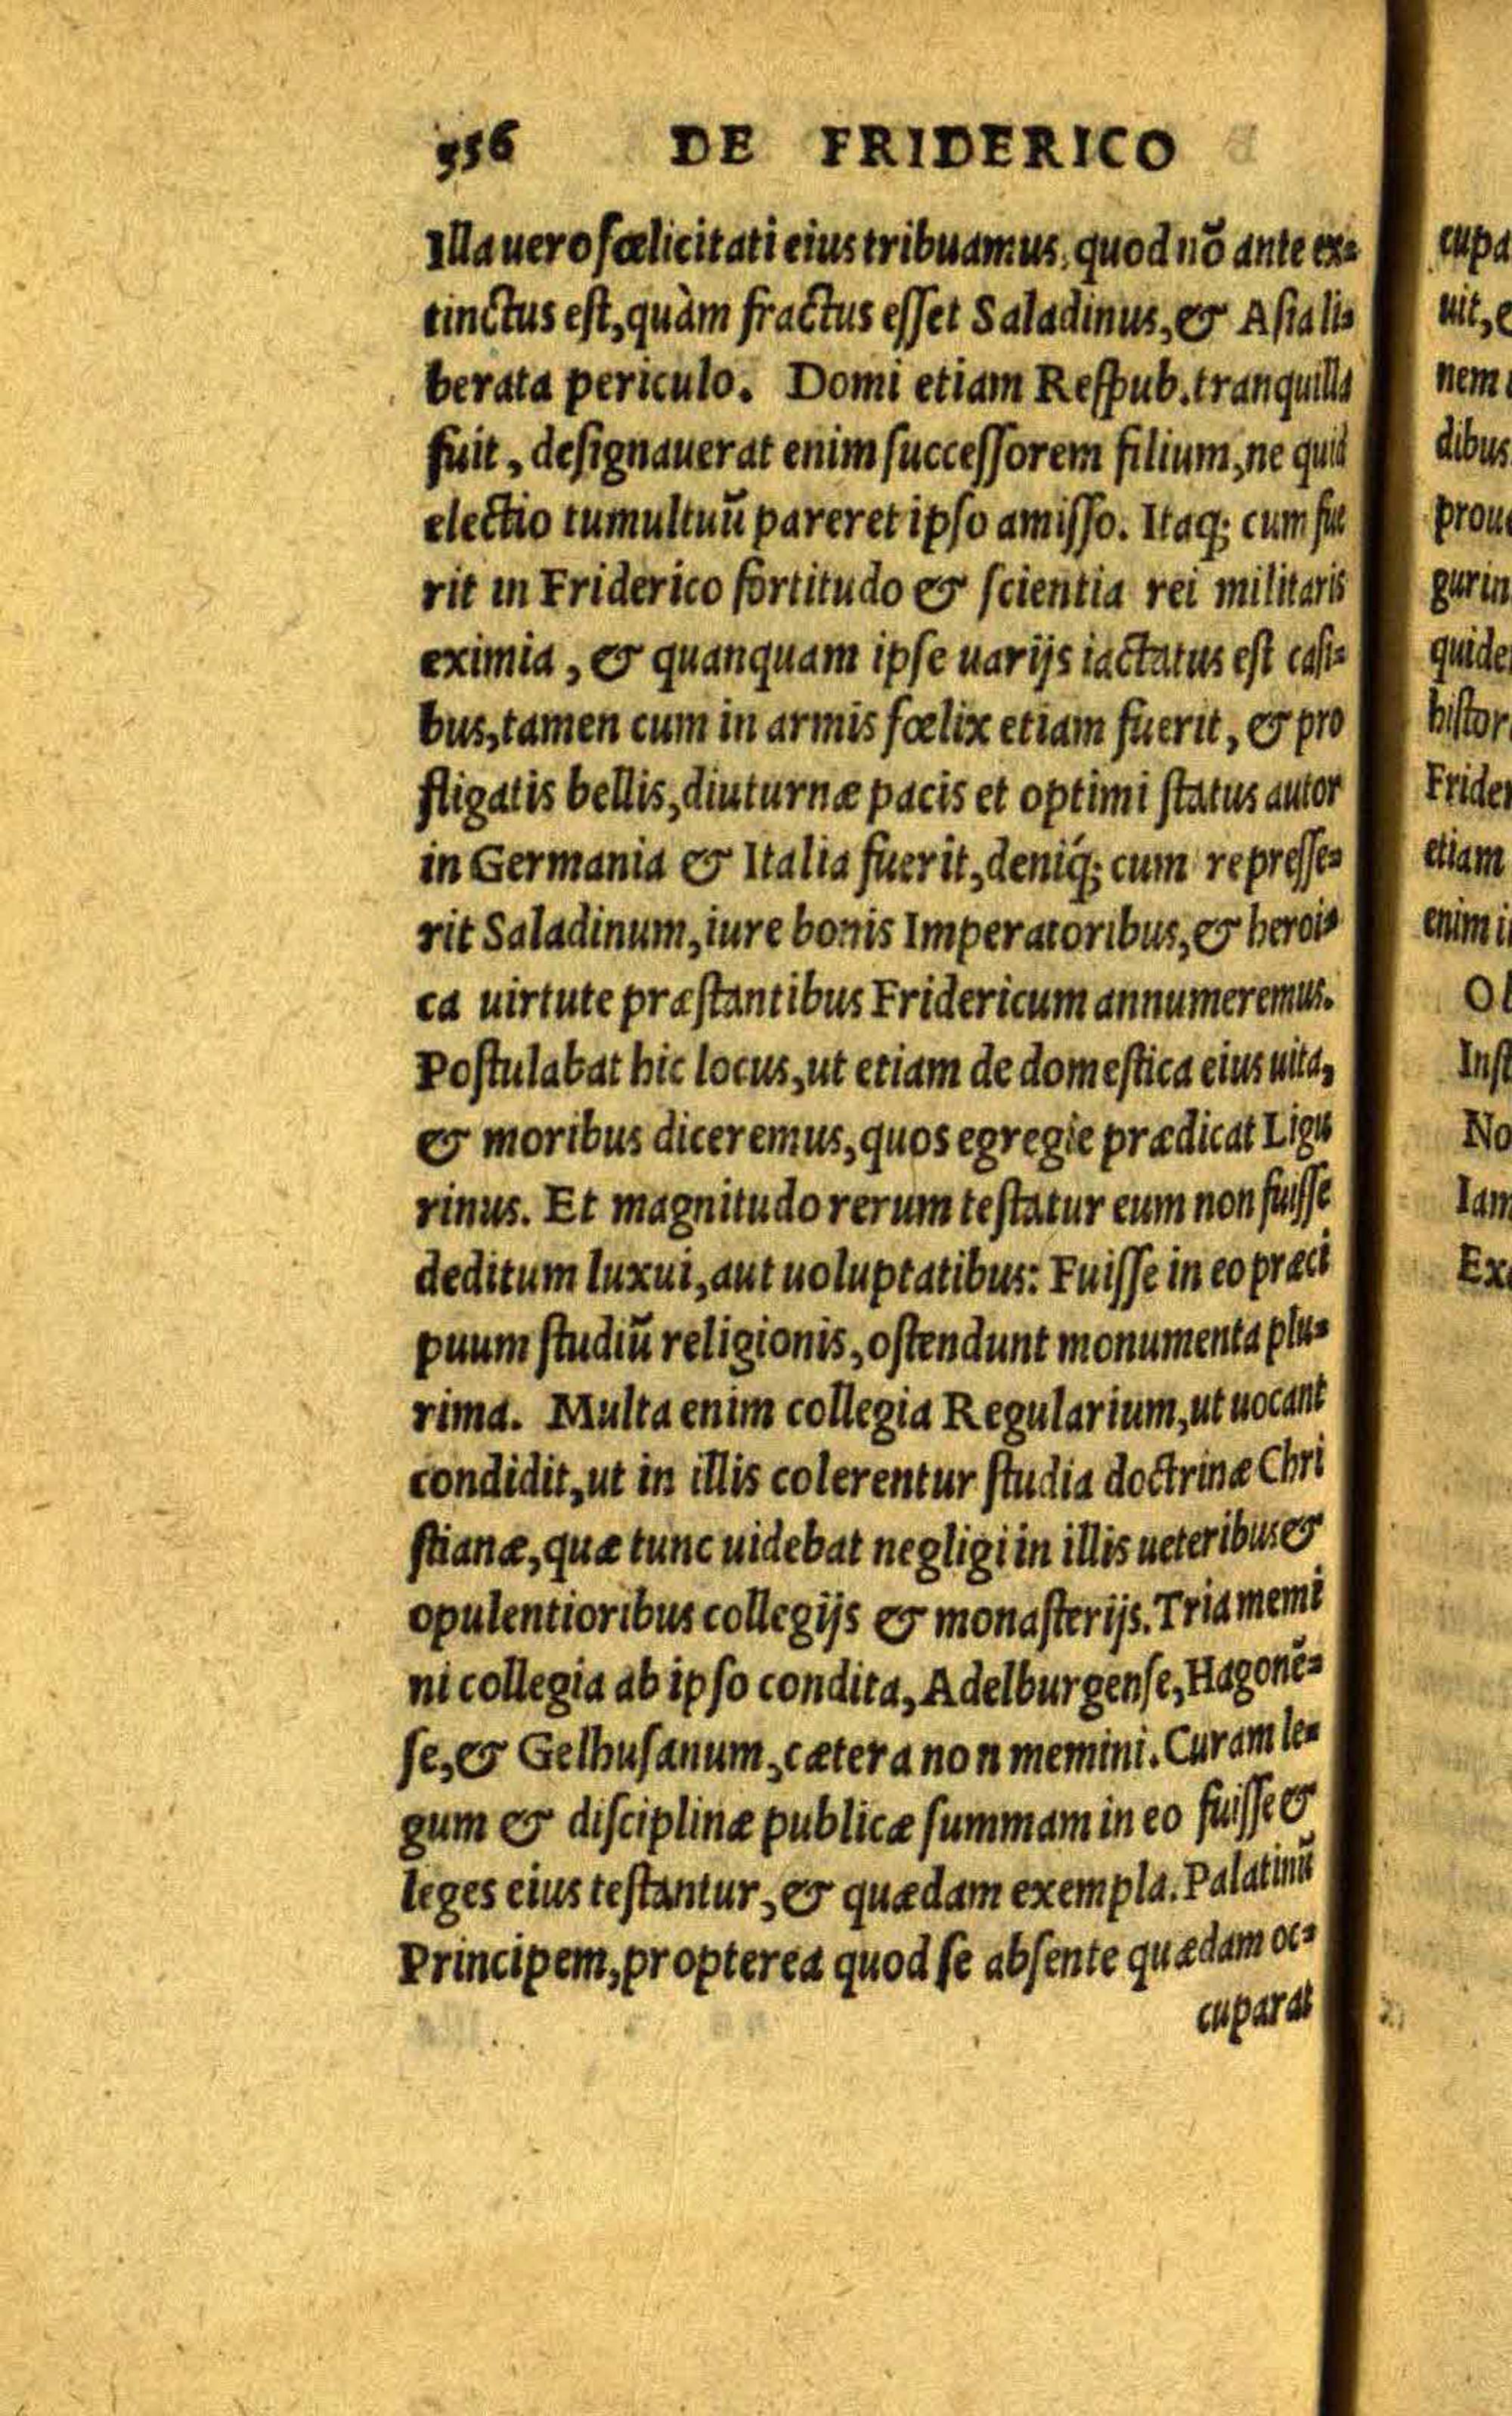 556 DE FRIDERICO
Illa uero fœlicitati eius tribuamus, quod nõ ante ex-
tinctus est, quàm fractus esset Saladinus, & Asia li-
berata periculo. Domi etiam Respub. tranquilla
fuit, designauerat enim successorem filium, ne quid
electio tumultuũ pareret ipso amisso. Itaq; cum fue
rit in Friderico fortitudo & scientia rei militaris
eximia, & quanquam ipse uarijs iactatus est casi-
bus, tamen cum in armis fœlix etiam fuerit, & pro
fligatis bellis, diuturnæ pacis et optimi status autor
in Germania & Italia fuerit, deniq́; cum represse-
rit Saladinum, iure bonis Imperatoribus, & heroi-
ca uirtute præstantibus Fridericum annumeremus.
Postulabat hic locus, ut etiam de domestica eius uita,
& moribus diceremus, quos egregie prædicat Ligu
rinus. Et magnitudo rerum testatur eum non fuisse
deditum luxui, aut uoluptatibus: Fuisse in eo præci
puum studiũ religionis, ostendunt monumenta plu-
rima. Multa enim collegia Regularium, ut uocant
condidit, ut in illis colerentur studia doctrinæ Chri
stianæ, quæ tunc uidebat negligi in illis ueteribus &
opulentioribus collegijs & monasterijs. Tria memi
ni collegia ab ipso condita, Adelburgense, Hagonẽ-
se, & Gelhusanum, cætera non memini. Curam le-
gum & disciplinæ publicæ summam in eo fuisse &
leges eius testantur, & quædam exempla. Palatinũ
Principem, propterea quod se absente quædam oc-
cuparat
cupa
uit,
nem
dibus
prou
gurin
quide
histor
Frider
etiam
enim i
Inst
No
Iam